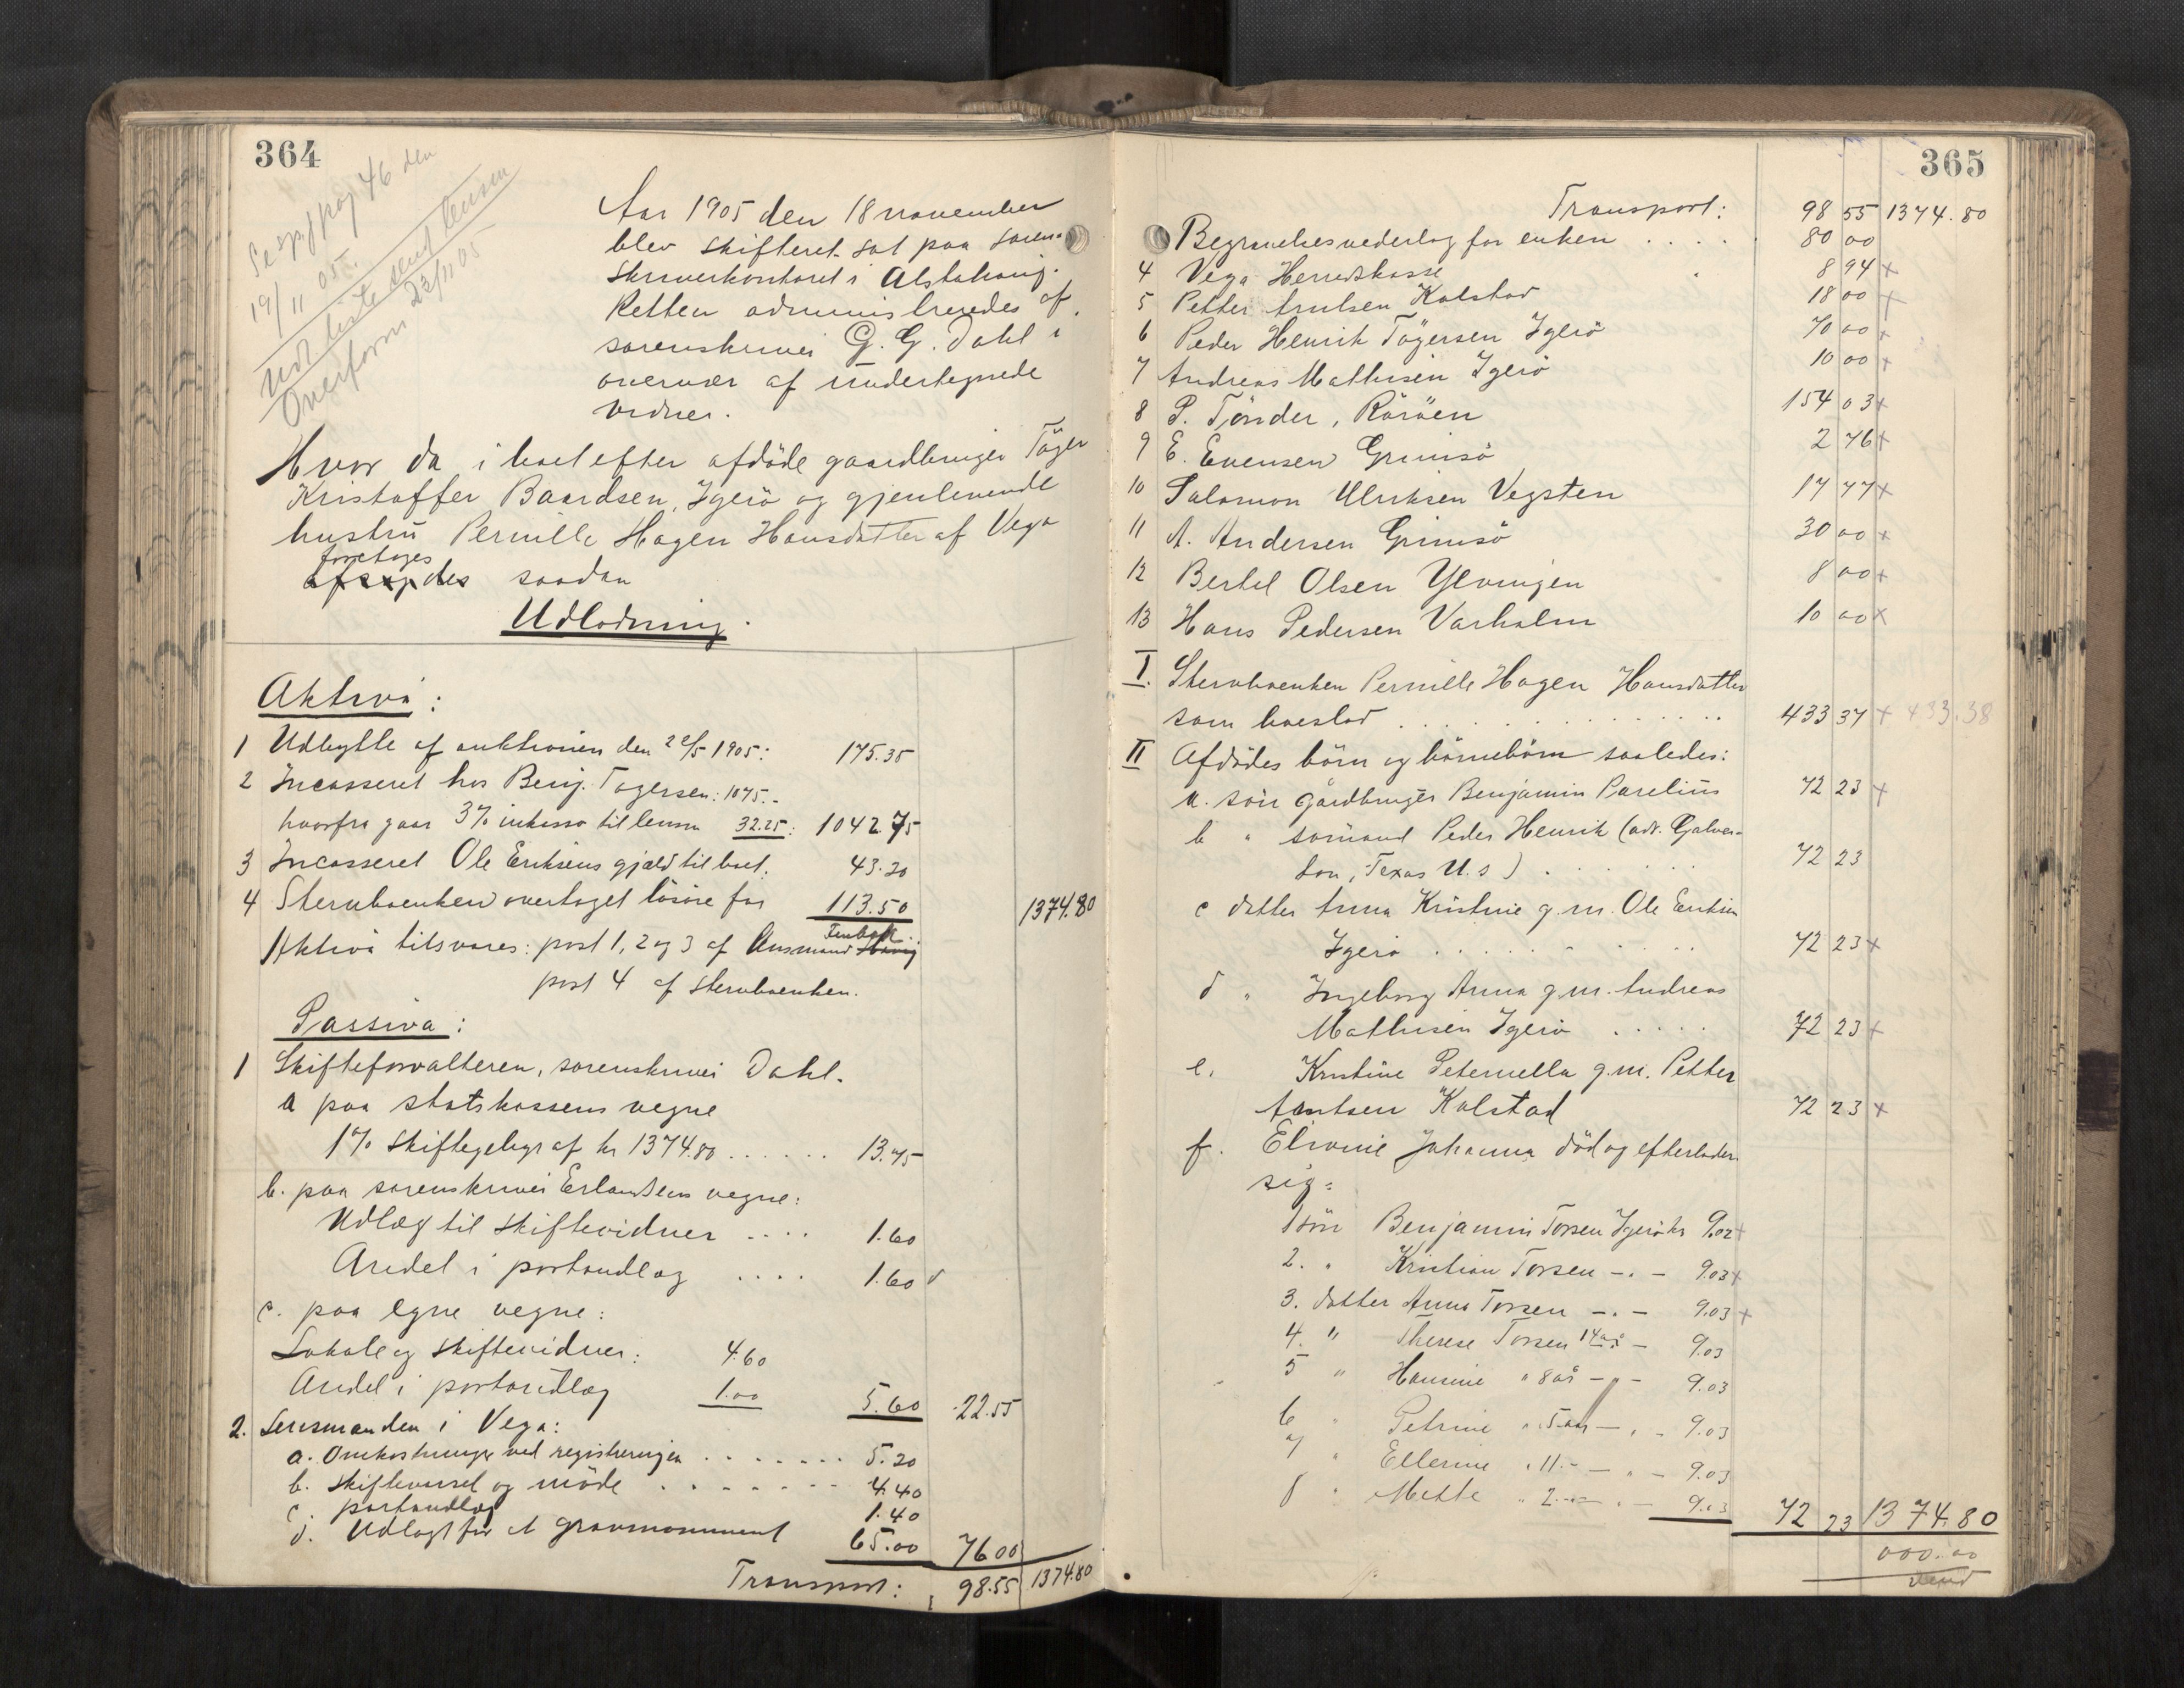 364
Se sp. pag 46 den
19/11 05.
Udl. liste send lensm
Overform 23/11 05
Aar 1905 den 18 november
blev skifteret sat paa soren-
skriverkontoret i Alstahaug.
Retten administreredes af
sorenskriver G. G. Dahl i
overvær af undertegnede
vidner.
Hvor da i boet efter afdöde gaardbruger Töger
Kristoffer Baardsen, Igerö og gjenlevende
hustru Pernille Hagen Hansdatter af Vega
foretoges
afsagdes saadan
Udlodning.
Aktiva:
1 Udbytte af auktionen den 22/5 1905: 175.35
2 Incasseret hos Benj. Tögersen: 1075.-
hvorfra gaar 3% inkasso til lensm 32.25: 1042.75
3 Incasseret Ole Eriksens gjæld til boet. 43.20
4 Stervboenken overtaget lösöre for 113.50 1374.80
Aktiva tilsvares: post 1, 2 og 3 af lensmand
post 4 af stervboenken.
Passiva:
1 Skifteforvalteren, sorenskriver Dahl.
a paa statskassens vegne
1% skiftegebyr af kr 1374.80 ...... 13.75
b. paa sorenskriver Erlandsens vegne:
Udlæg til skiftevidner .... 1.60
Andel i portoudlæg .... 1.60
c. paa egne vegne:
Lokale og skiftevidner: 4.60
Andel i portoudlæg 1.00 5.60 22.55
2. Lensmanden i Vega:
a. Omkostninger ved registreringen ....... 5.20
b. skiftevarsel og möde ....... 4.40
c. portoudlæg 1.40
d. Udlagt for et gravmonument 65.00 76 00
Transport: 98.55 1374.80
365
Transport: 98 55 1374.80
Begravelsesvederlag for enken .... 80 00
4 Vega Herredskasse 8 94 x
5 Petter Arntsen Kalstad 18 00 x
6 Peder Henrik Tögersen Igerö 70 00 x
7 Andreas Mathisen Igerö 10 00 x
8 P. Tönder, Röröen 154 03 x
9 E. Evensen Grimsö 2 76 x
10 Salomon Ulriksen Vegsten 17 77 x
11 A. Andersen Grimsö 30 00 x
12 Bertel Olsen Ylvingen 8 00 x
13 Hans Pedersen Varholm 10 00 x
I. Stervboenken Pernille Hagen Hansdatter
som boeslod ............. 433 37 x 433.38
II Afdödes börn og börnebörn saaledes:
a. sön gårdbruger Benjamin Parelius 72 23 x
b " sömand Peder Henrik (adr. Galves-
ton, Texas U.S) ...... 72 23
c datter Anna Kristine g.m. Ole Eriksen
Igerö ....... 72 23 x
d " Ingeborg Anna g.m. Andreas
Mathisen Igerö ..... 72 23 x
e. Kristine Peternella g.m. Petter
Arntsen Kalstad 72 23 x
f. Elivine Johanna död og efterlader
sig:
1 sön Benjamin Torsen Igerö kr 9.02 x
2. " Kristian Torsen -.- 9.03 x
3. datter Anna Torsen -.- 9.03 x
4. " Therese Torsen 14 år - 9.03
5 " Hansine " 8 år - " - 9.03
6 " Petrine " 5 år - " - 9.03
7 " Ellerine " 11 .- - " - 9.03
8 " Mette " 2 .- - " - 9.03 72 23 1374.80
000.00